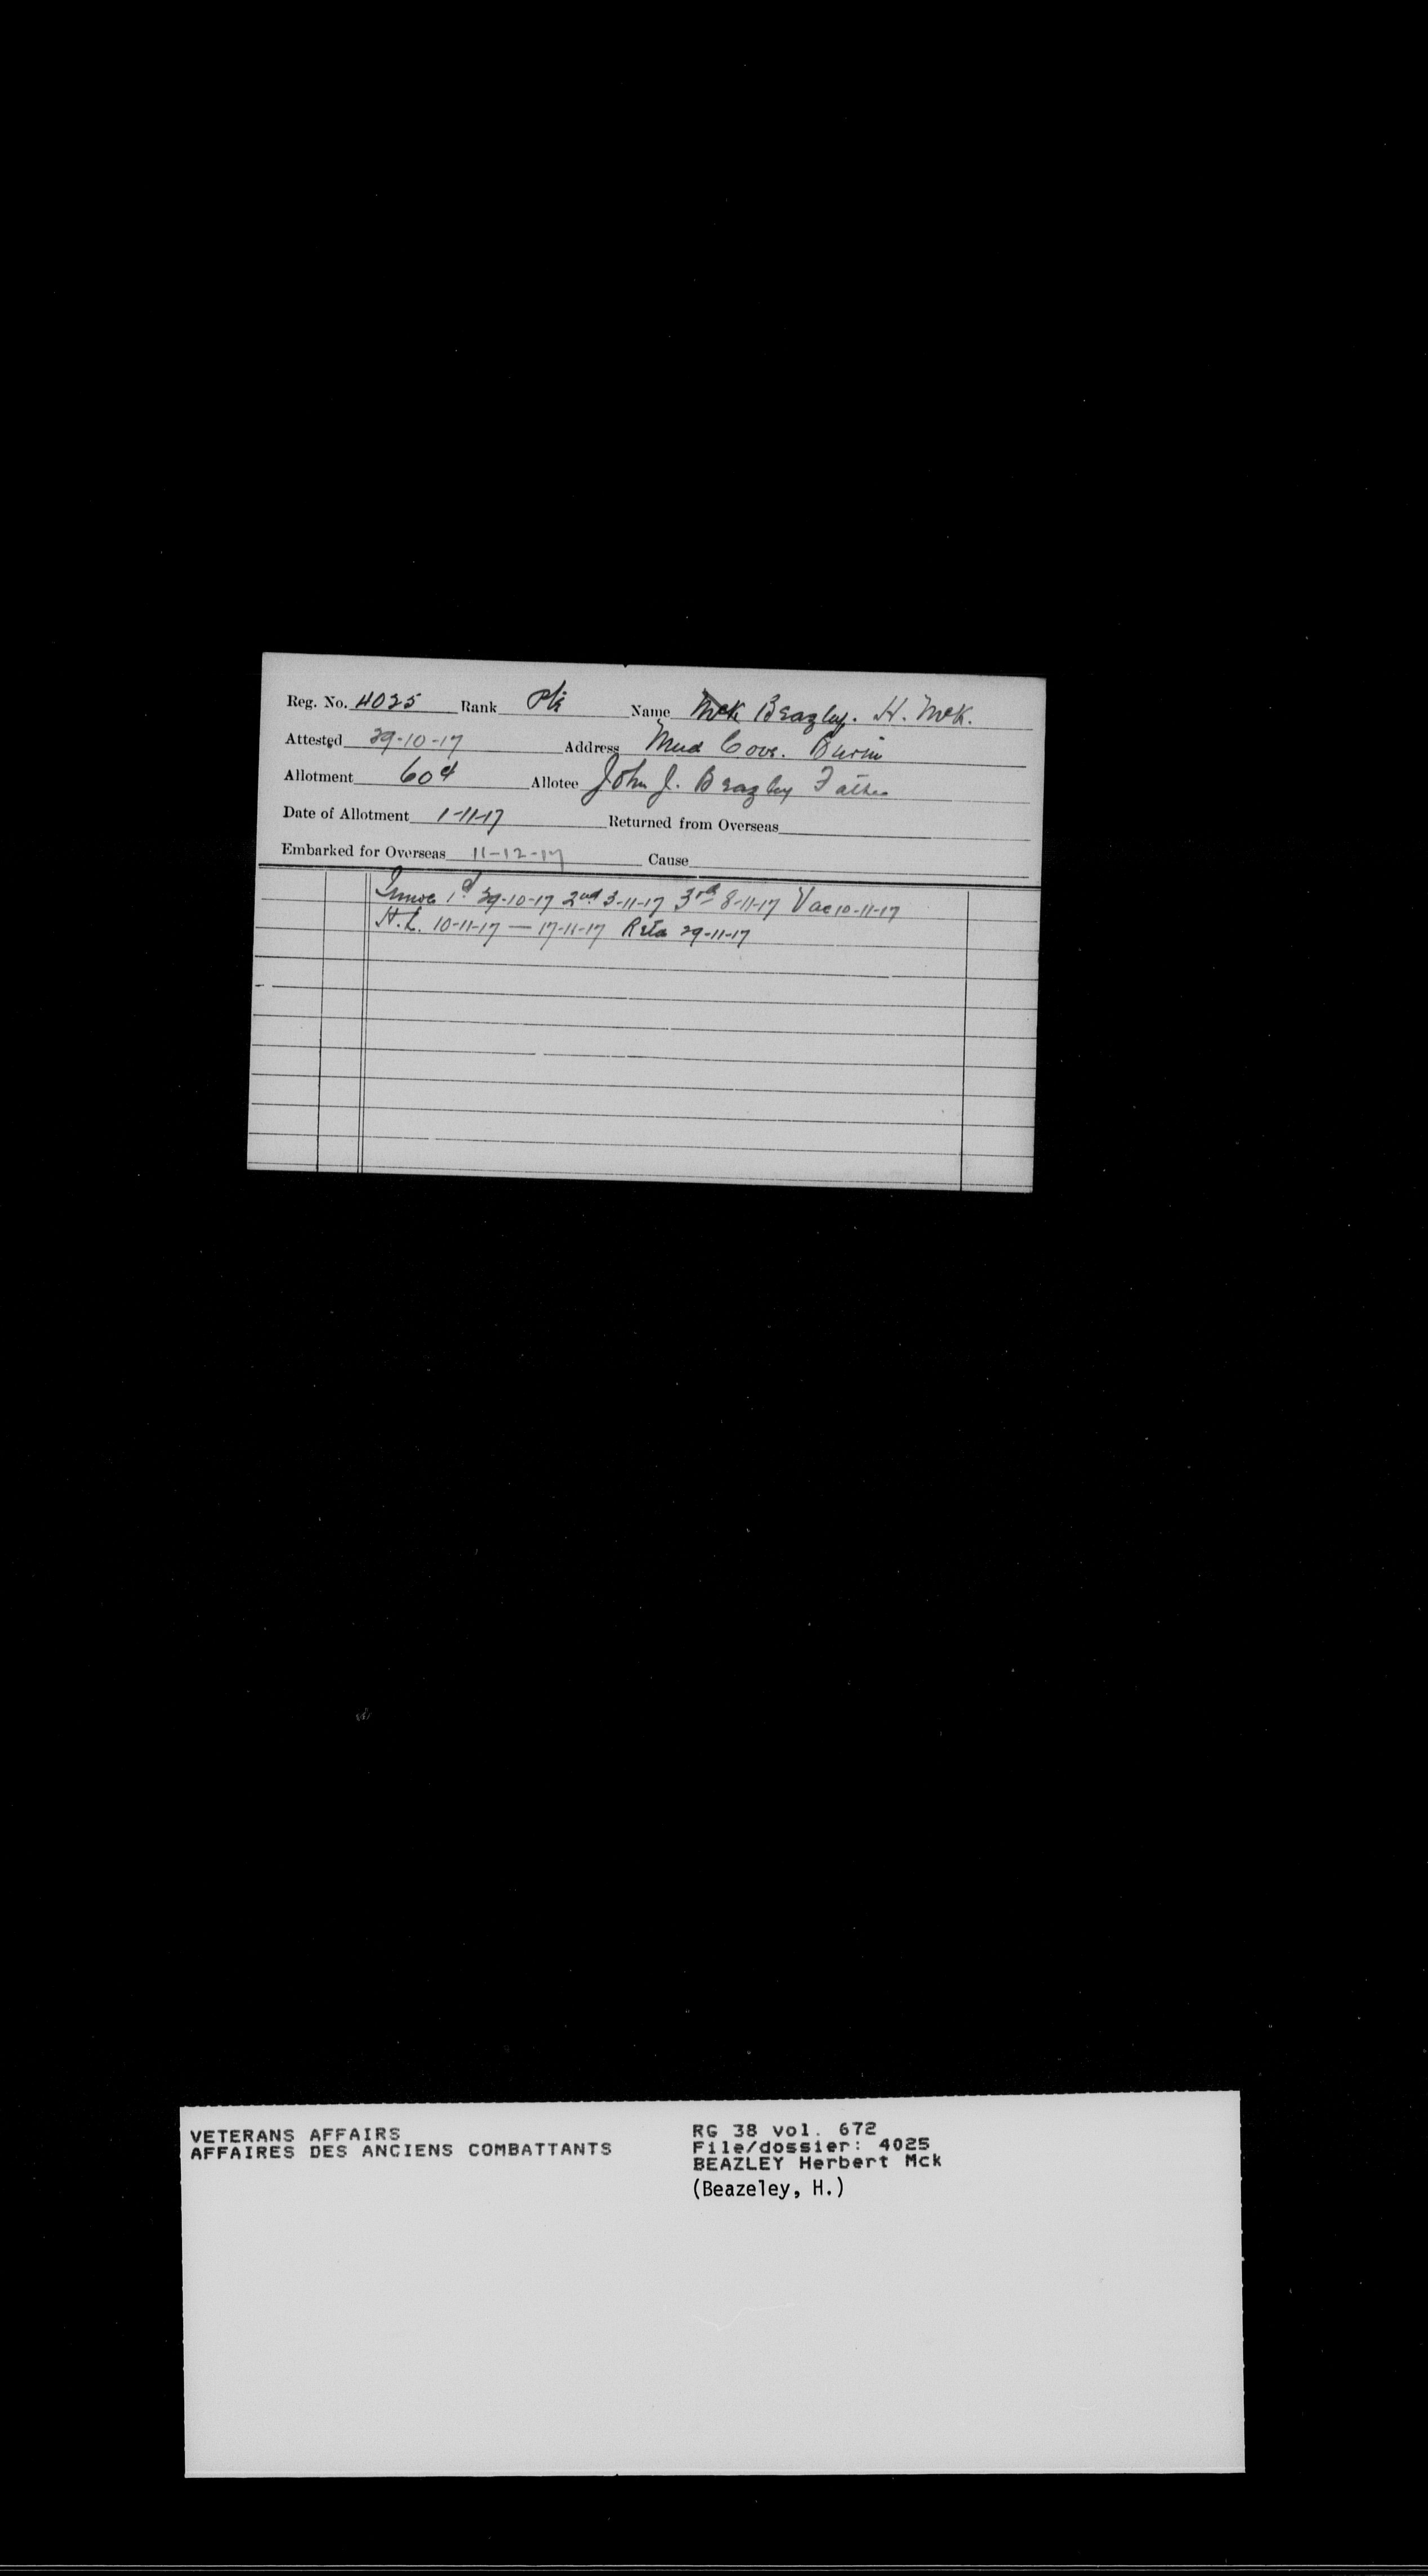 Reg. No. 4025 Rank Pte Name McK Beazley. H. McK.
Attested 29-10-17 Address Mud Cove. Burin
Allotment 60¢ Allotee John J. Beazley Father
Date of Allotment 1-11-17 Returned from Overseas
Embarked for Overseas 11-12-17 Cause
1st 29-10-17 2nd 3-11-17 3rd 8-11-17 Vac 10-11-17
H.L. 10-11-17 — 17-11-17 29-11-17
VETERANS AFFAIRS
AFFAIRES DES ANCIENS COMBATTANTS
RG 38 vol. 672
File/dossier: 4025
BEAZLEY Herbert Mck
(Beazeley, H.)